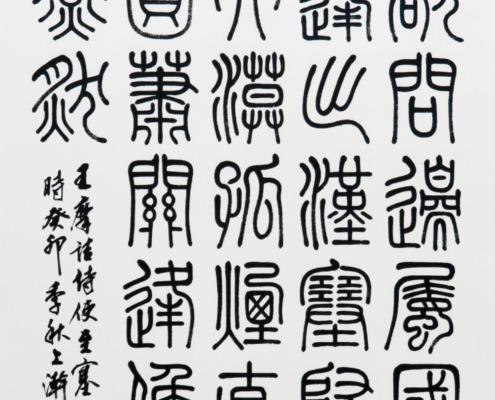 欲問邊屬國
蓬出漢塞歸
大漠孤煙直
圓蕭關逢候
燕然
王摩詰詩使至塞
時癸卯季秋上澣